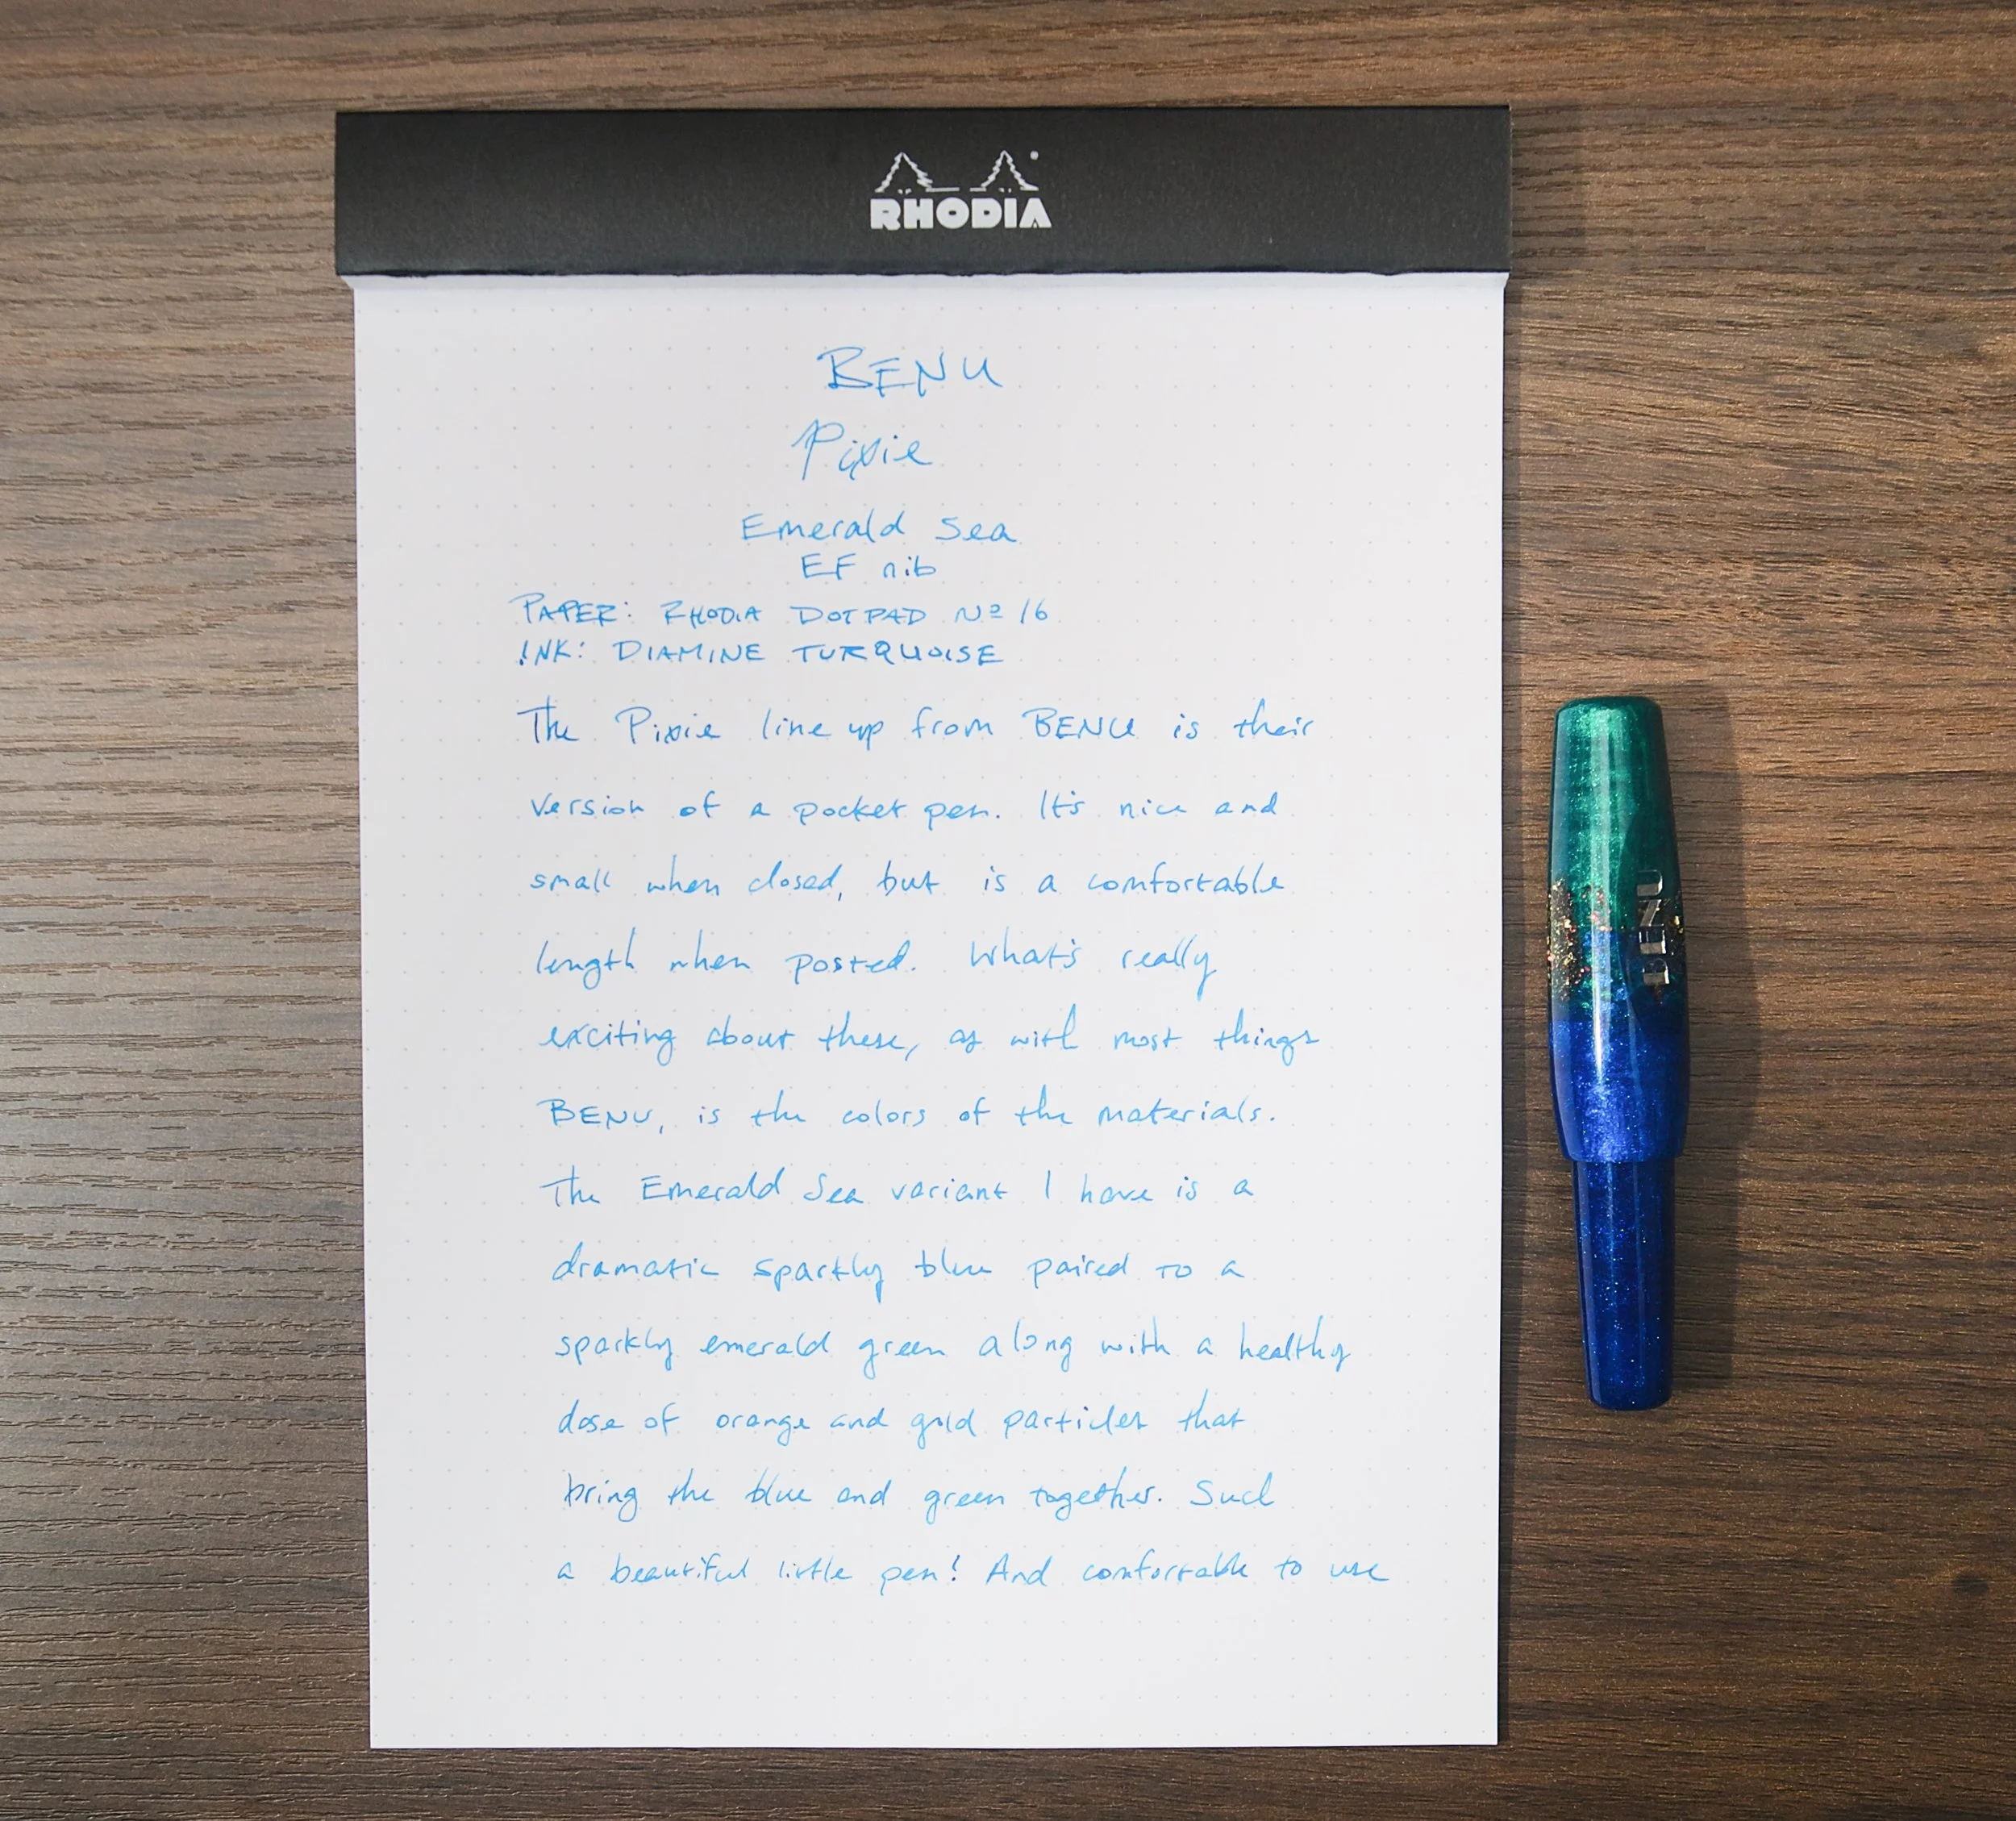 RHODIA
BENU
Pixie
Emerald Sea
EF nib
PAPER: RHODIA DOTPAD Nº 16
INK: DIAMINE TURQUOISE
The Pixie line up from BENU is their
version of a pocket pen. It's nice and
small when closed, but is a comfortable
length when posted. What's really
exciting about these, as with most things
BENU, is the colors of the materials.
The Emerald Sea variant I have is a
dramatic sparkly blue paired to a
sparkly emerald green along with a healthy
dose of orange and gold particles that
bring the blue and green together. Such
a beautiful little pen! And comfortable to use
BENU